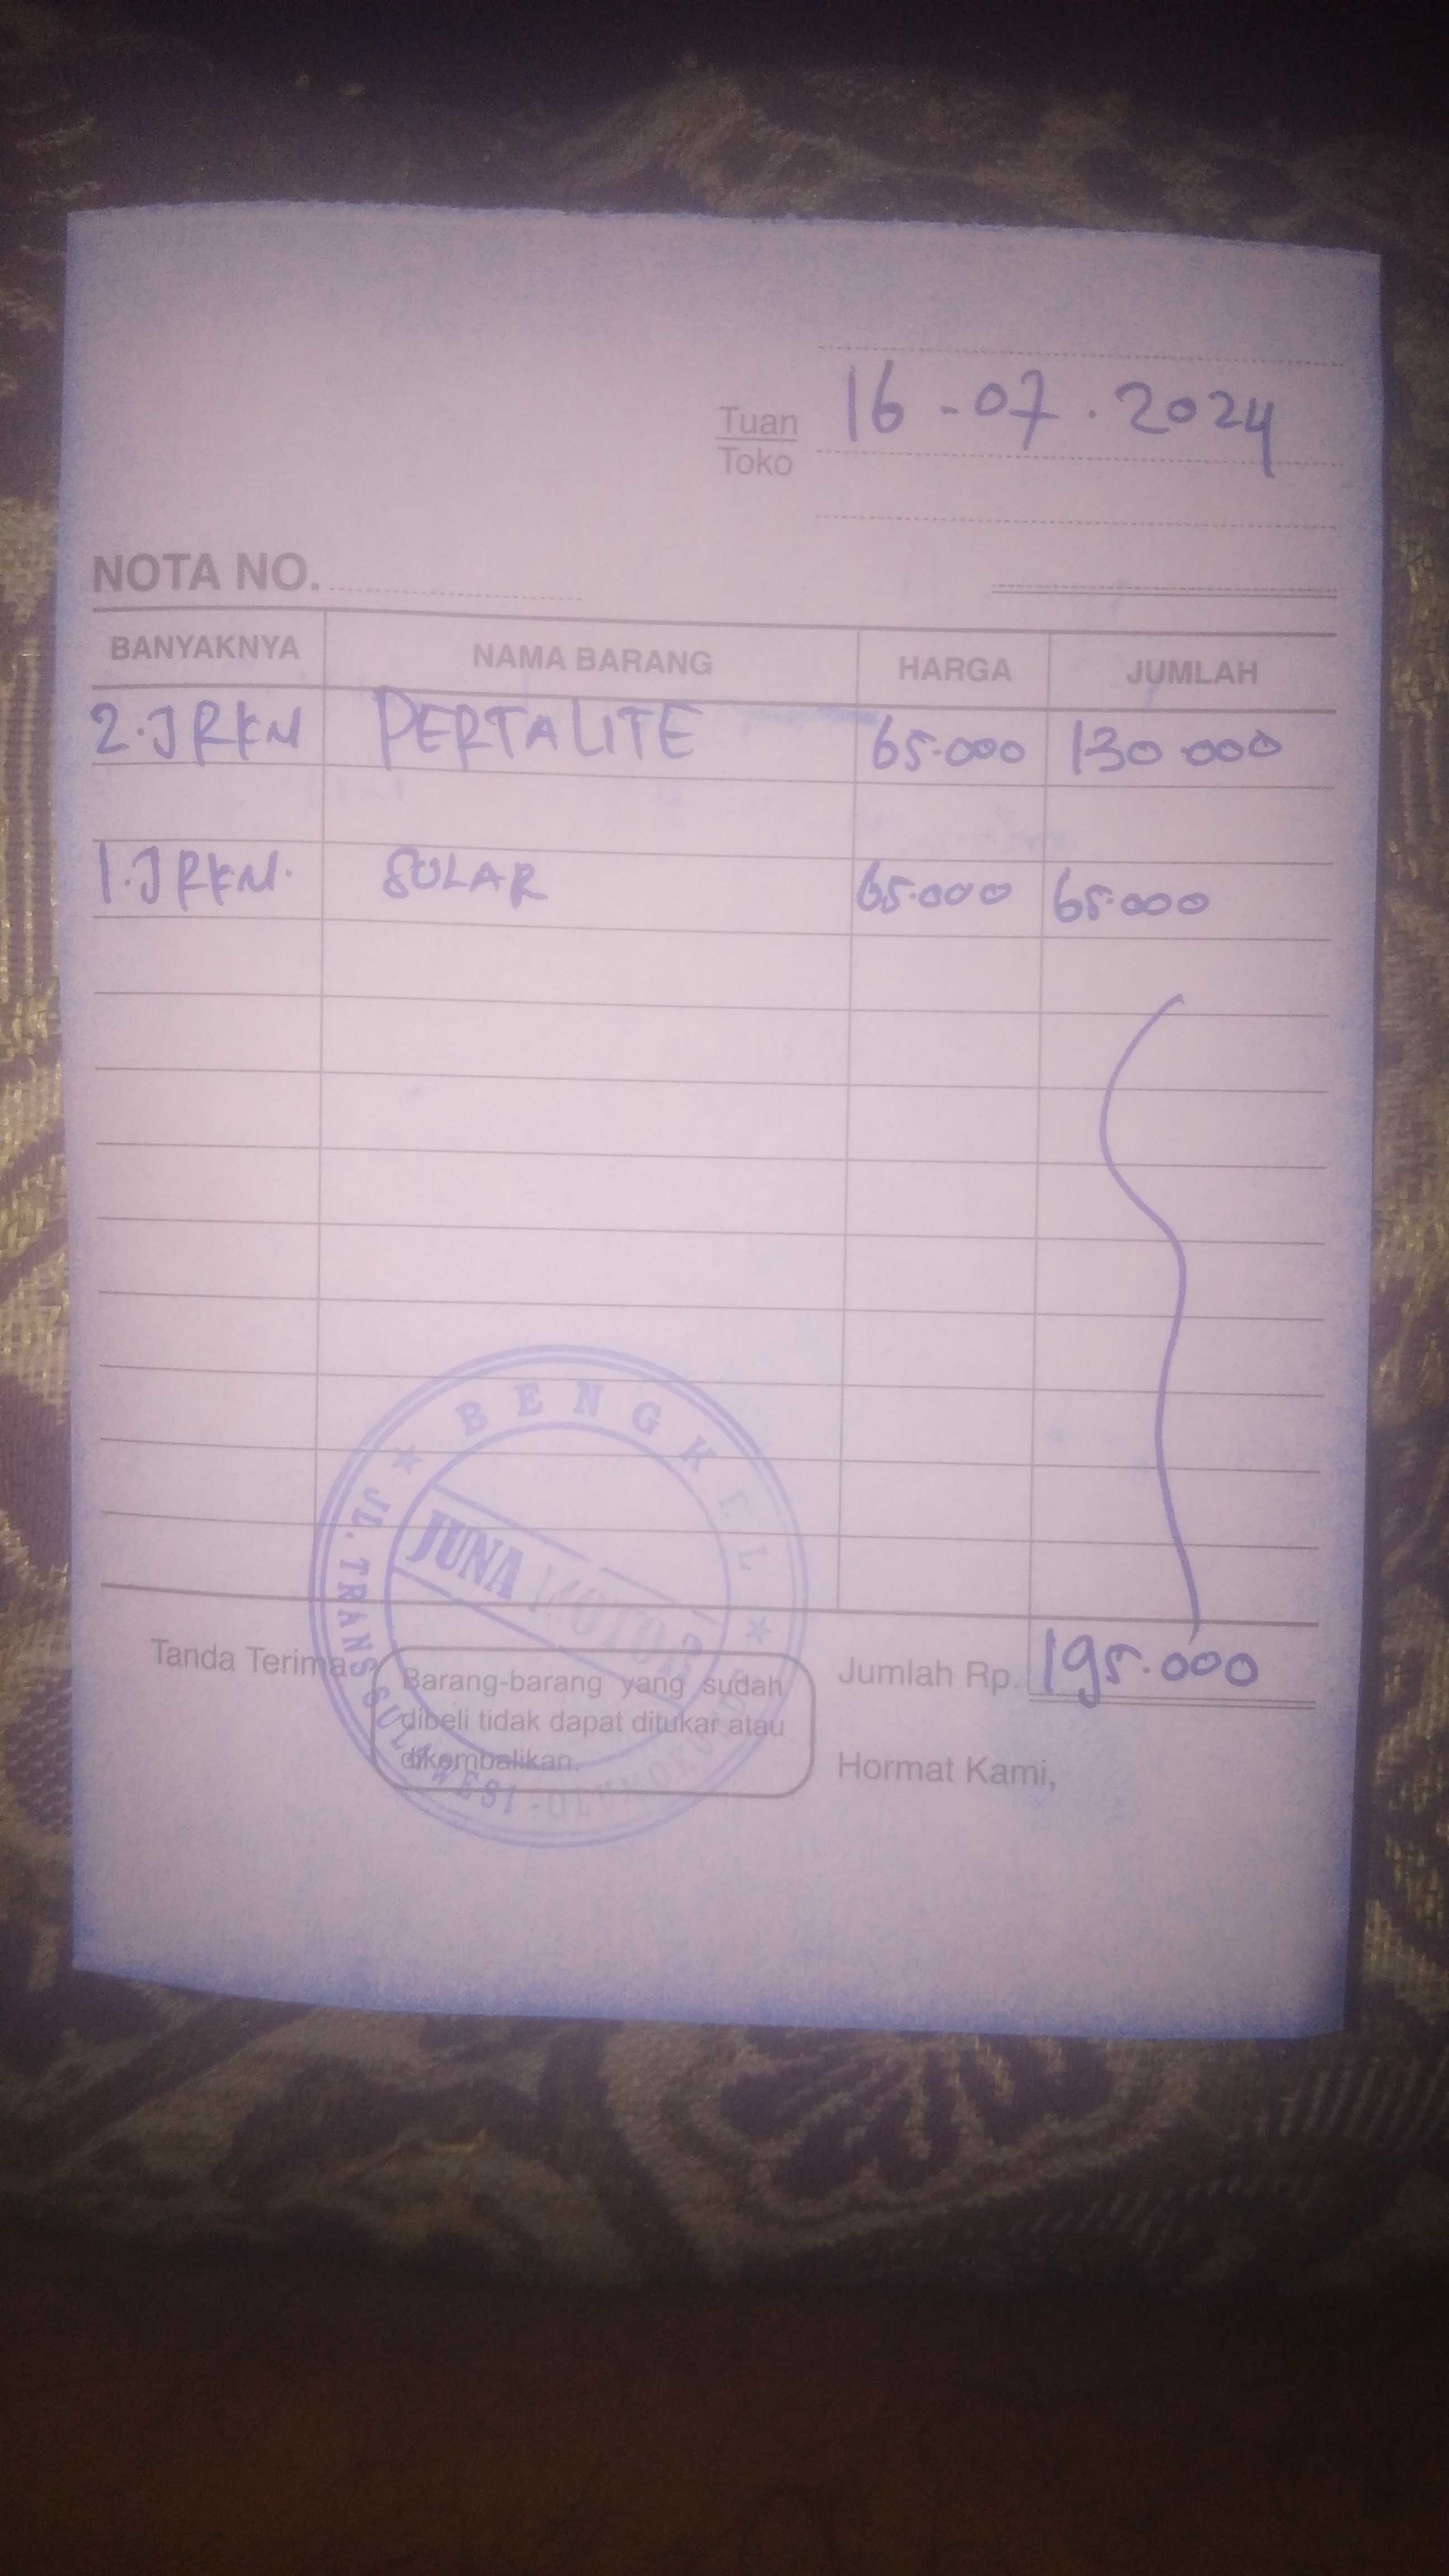 16-07.2024
Tuan
Toko
NOTA NO.
BANYAKNYA NAMA BARANG HARGA JUMLAH
2.JRKN PERTALITE 65.000 130.000
1.JRKN. SOLAR 65.000 65.000
BENGKEL
JUNA MOTOR
JL. TRANS SULAWESI -
Tanda Terima
Jumlah Rp. 195.000
Barang-barang yang sudah
dibeli tidak dapat ditukar atau
dikembalikan.
Hormat Kami,